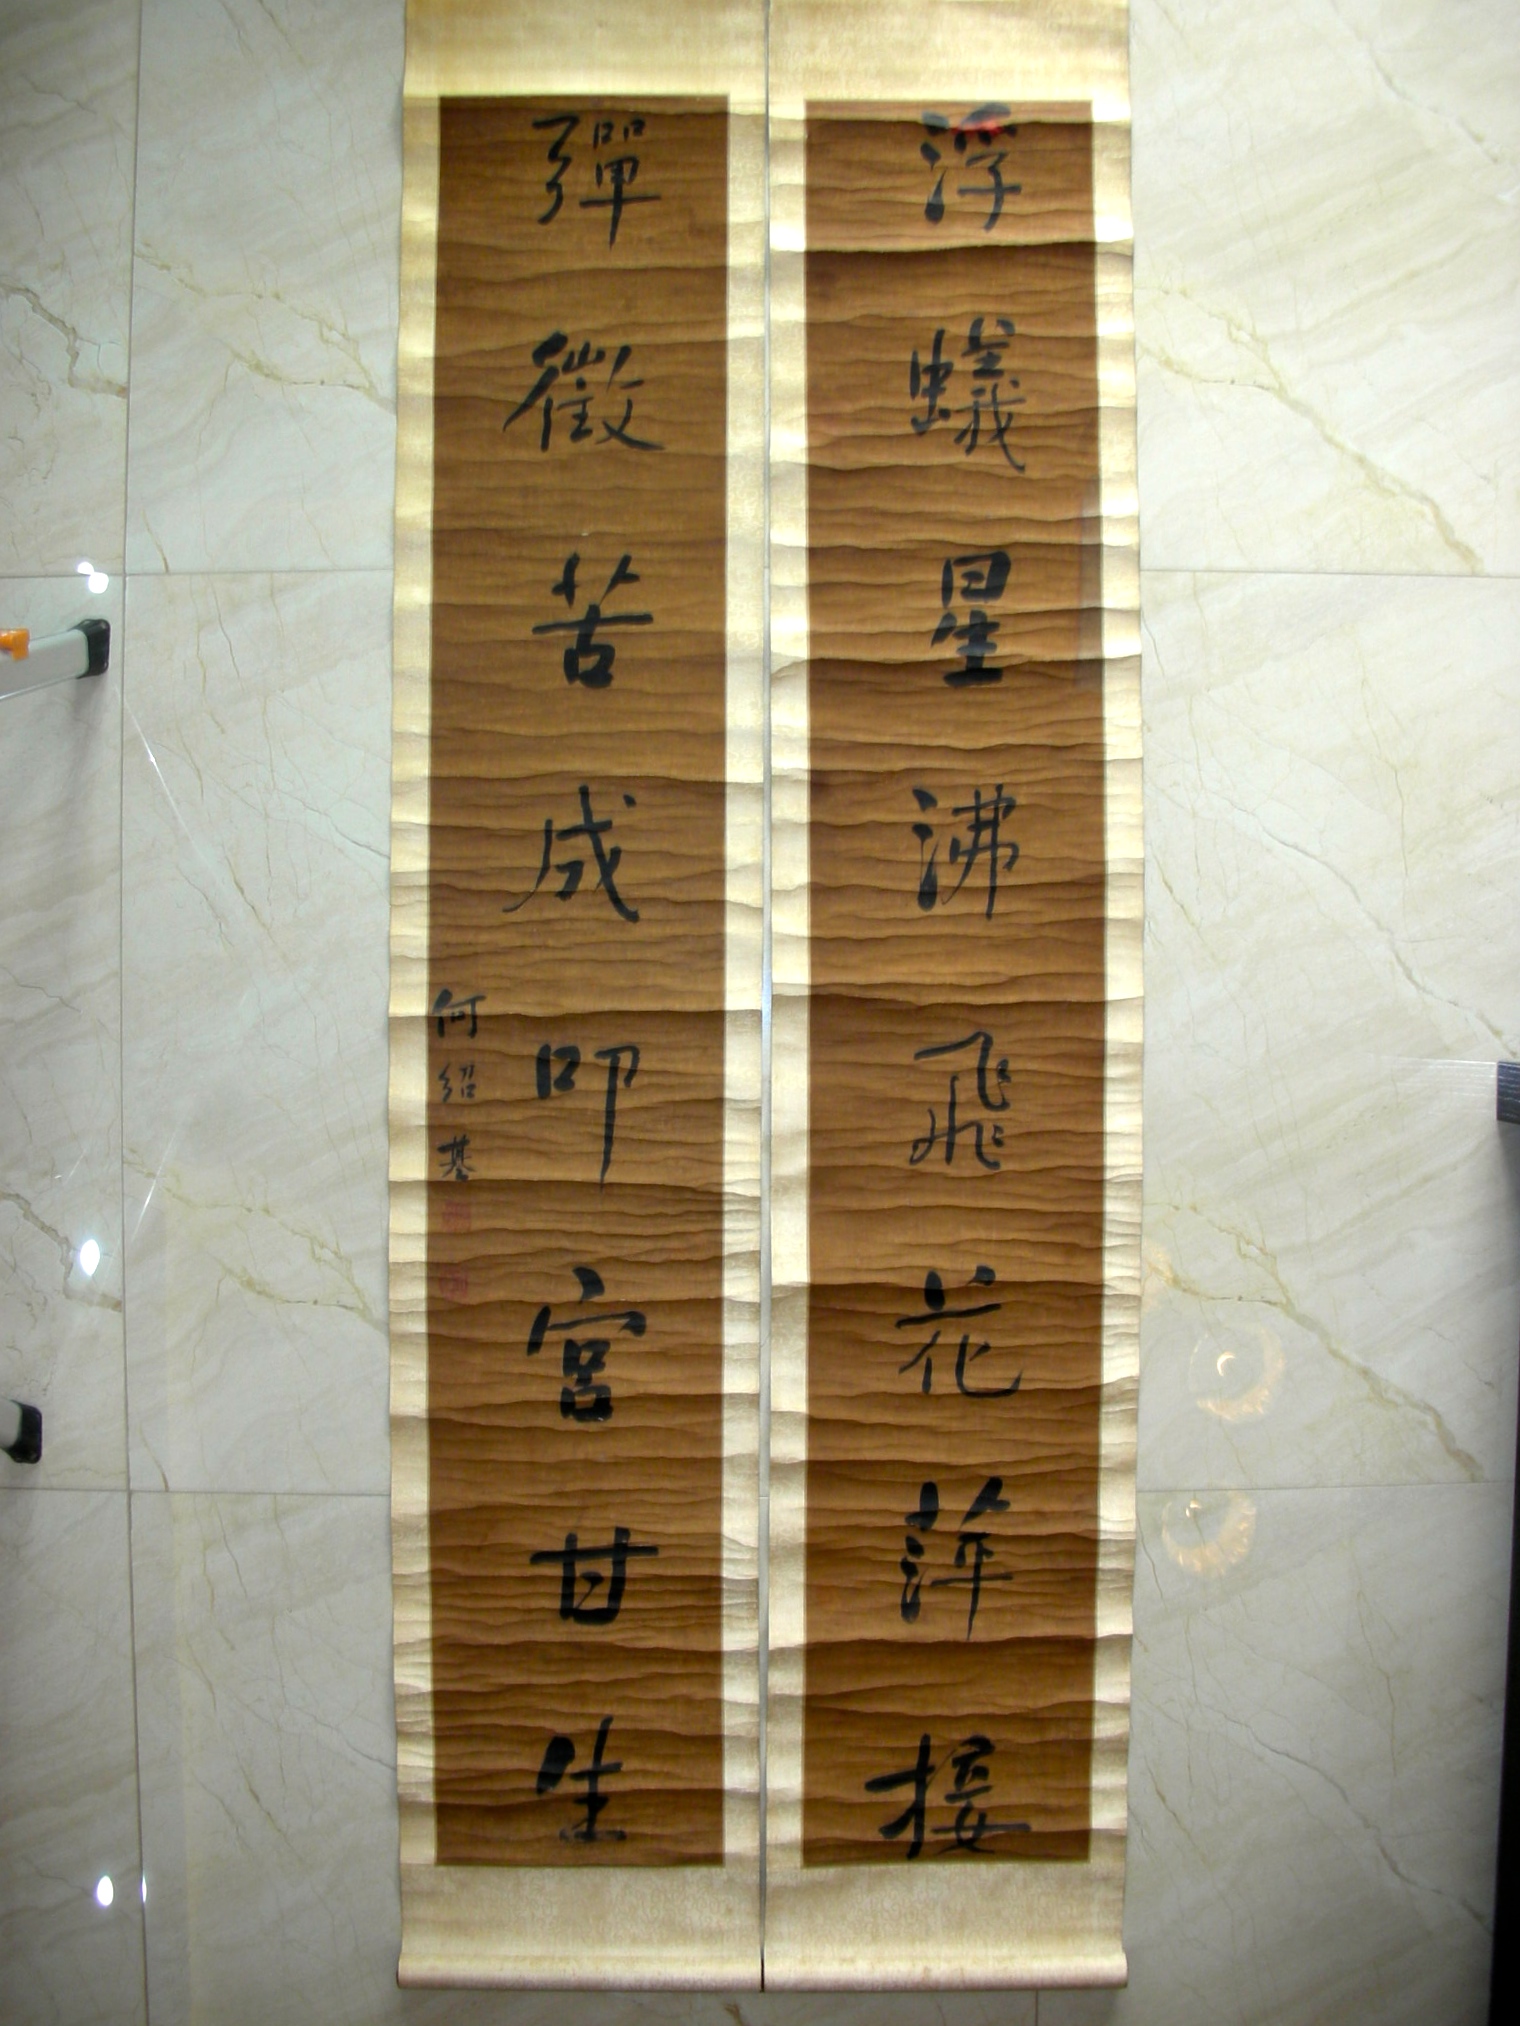 浮蟻星沸飛花萍接
彈徵苦成叩宮甘生
何紹基